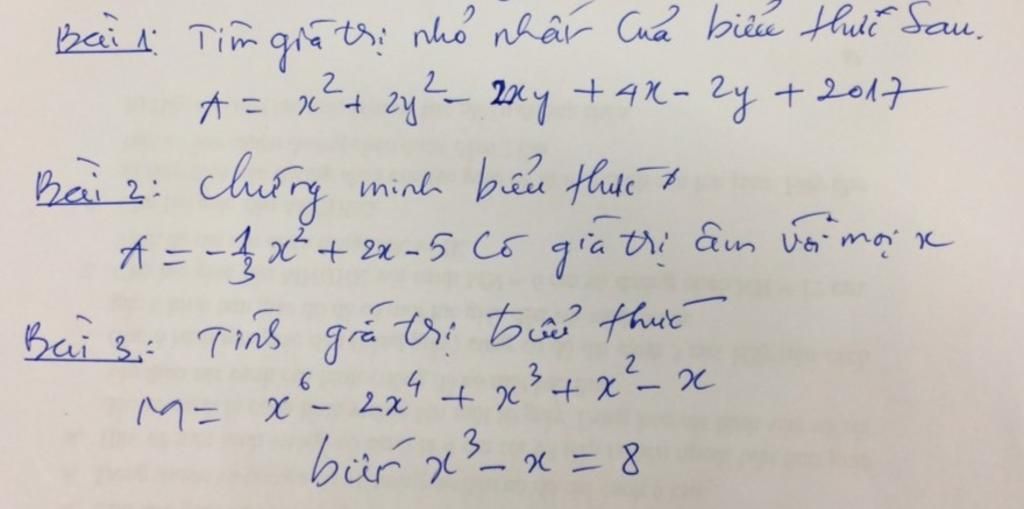 Bài 1: Tìm giá trị nhỏ nhất của biểu thức sau.
A = x² + 2y² - 2xy + 4x - 2y + 2017
Bài 2: Chứng minh biểu thức
A = -1/3 x² + 2x - 5 có giá trị âm với mọi x
Bài 3: Tính giá trị biểu thức
M = x⁶ - 2x⁴ + x³ + x² - x
biết x³ - x = 8